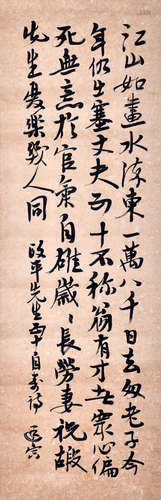 江山如畫水流東一萬八千日去匆老子今
年仍出塞丈夫五十不稱翁有才衆心偏
死無意於官氣自雄歲歲長勞妻祝嘏
先生憂樂幾人同
政平先生五十自壽詩